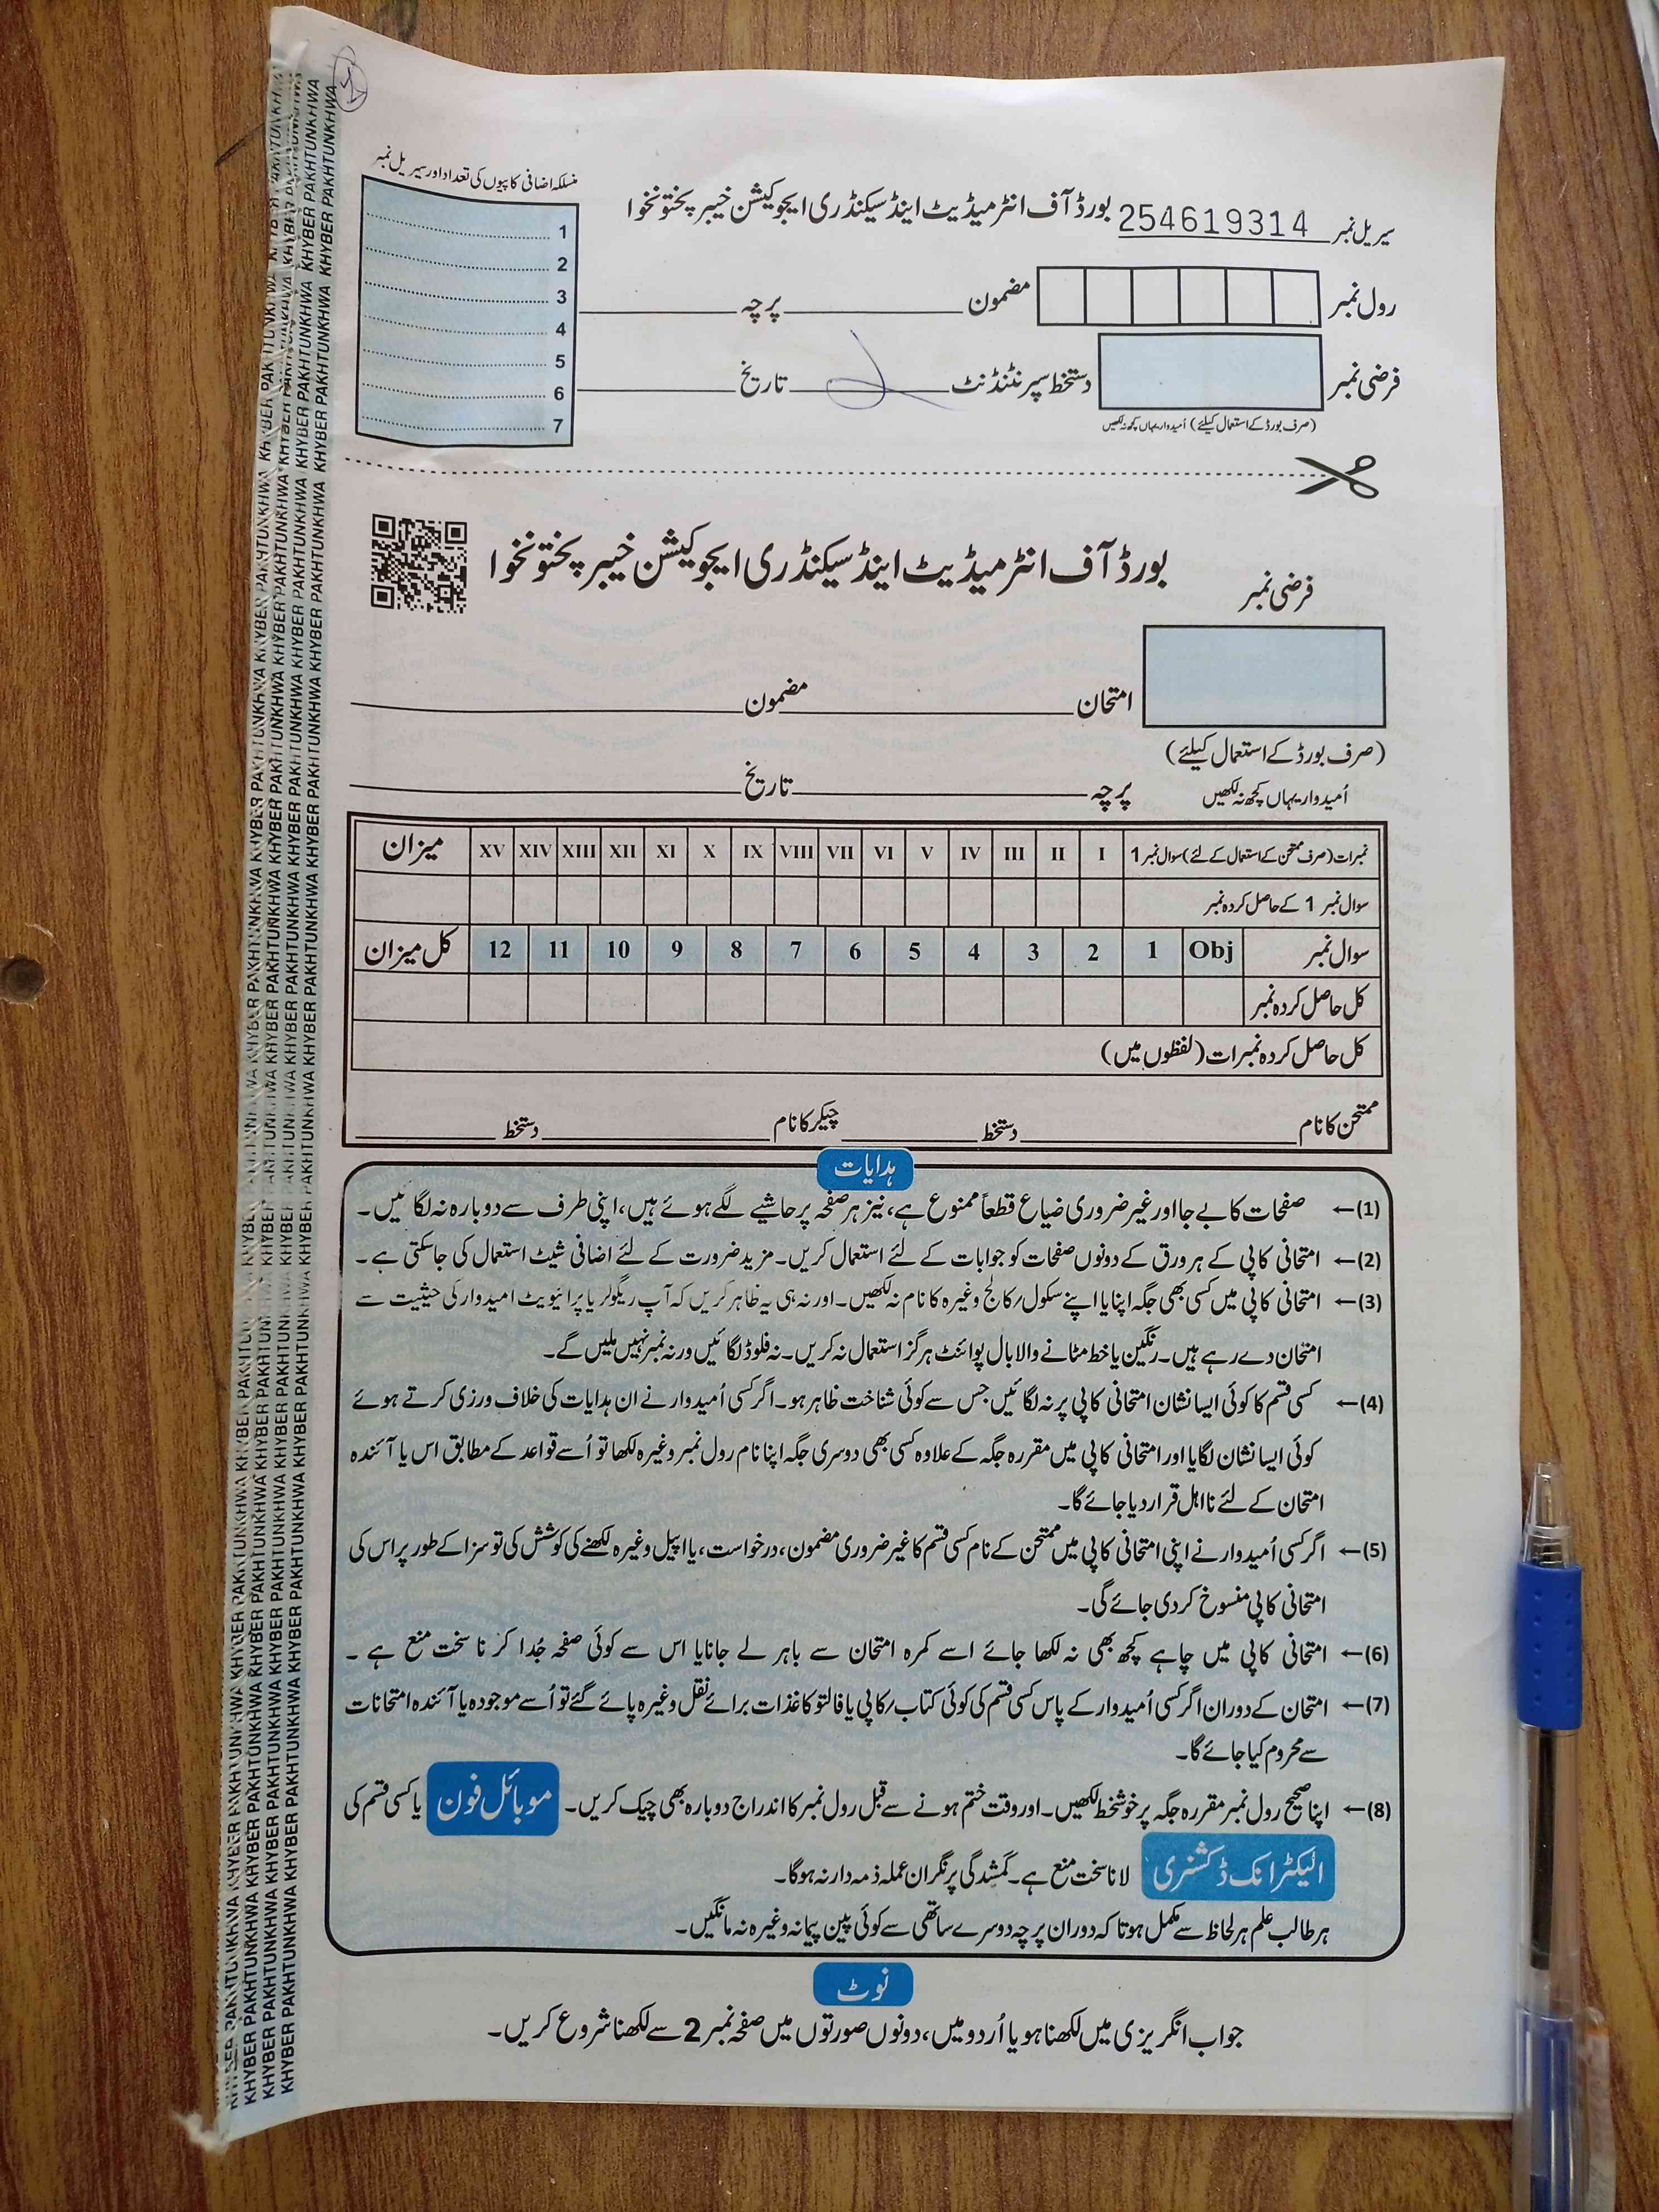 منسلکہ اضافی کاپیوں کی تعداد اور سیریل نمبر
1
2
3
4
5
6
7
سیریل نمبر 254619314 بورڈ آف انٹرمیڈیٹ اینڈ سیکنڈری ایجوکیشن خیبر پختونخوا
رول نمبر مضمون پرچہ
فرضی نمبر دستخط سپرنٹنڈنٹ تاریخ
(صرف بورڈ کے استعمال کیلئے) اُمیدوار یہاں کچھ نہ لکھیں
بورڈ آف انٹرمیڈیٹ اینڈ سیکنڈری ایجوکیشن خیبر پختونخوا
فرضی نمبر
امتحان مضمون
(صرف بورڈ کے استعمال کیلئے)
اُمیدوار یہاں کچھ نہ لکھیں
پرچہ تاریخ
نمبرات (صرف ممتحن کے استعمال کے لئے) سوال نمبر 1 I II III IV V VI VII VIII IX X XI XII XIII XIV XV میزان
سوال نمبر 1 کے حاصل کردہ نمبر
سوال نمبر Obj 1 2 3 4 5 6 7 8 9 10 11 12 کل میزان
کل حاصل کردہ نمبر
کل حاصل کردہ نمبرات (لفظوں میں)
ممتحن کا نام دستخط چیکر کا نام دستخط
ہدایات
(1)← صفحات کا بے جا اور غیر ضروری ضیاع قطعاً ممنوع ہے، نیز ہر صفحہ پر حاشیے لگے ہوئے ہیں، اپنی طرف سے دوبارہ نہ لگائیں۔
(2)← امتحانی کاپی کے ہر ورق کے دونوں صفحات کو جوابات کے لئے استعمال کریں۔ مزید ضرورت کے لئے اضافی شیٹ استعمال کی جاسکتی ہے۔
(3)← امتحانی کاپی میں کسی بھی جگہ اپنا یا اپنے سکول/کالج وغیرہ کا نام نہ لکھیں۔ اور نہ ہی یہ ظاہر کریں کہ آپ ریگولر یا پرائیویٹ امیدوار کی حیثیت سے
امتحان دے رہے ہیں۔ رنگین یا خط مٹانے والا بال پوائنٹ ہرگز استعمال نہ کریں۔ نہ فلوڈ لگائیں ورنہ نمبر نہیں ملیں گے۔
(4)← کسی قسم کا کوئی ایسا نشان امتحانی کاپی پر نہ لگائیں جس سے کوئی شناخت ظاہر ہو۔ اگر کسی اُمیدوار نے ان ہدایات کی خلاف ورزی کرتے ہوئے
کوئی ایسا نشان لگایا اور امتحانی کاپی میں مقررہ جگہ کے علاوہ کسی بھی دوسری جگہ اپنا نام رول نمبر وغیرہ لکھا تو اُسے قواعد کے مطابق اس یا آئندہ
امتحان کے لئے نااہل قرار دیا جائے گا۔
(5)← اگر کسی اُمیدوار نے اپنی امتحانی کاپی میں ممتحن کے نام کسی قسم کا غیر ضروری مضمون، درخواست، یا اپیل وغیرہ لکھنے کی کوشش کی تو سزا کے طور پر اس کی
امتحانی کاپی منسوخ کردی جائے گی۔
(6)← امتحانی کاپی میں چاہے کچھ بھی نہ لکھا جائے اسے کمرہ امتحان سے باہر لے جانا یا اس سے کوئی صفحہ جُدا کرنا سخت منع ہے۔
(7)← امتحان کے دوران اگر کسی اُمیدوار کے پاس کسی قسم کی کوئی کتاب/کاپی یا فالتو کاغذات برائے نقل وغیرہ پائے گئے تو اُسے موجودہ یا آئندہ امتحانات
سے محروم کیا جائے گا۔
(8)← اپنا صحیح رول نمبر مقررہ جگہ پر خوشخط لکھیں۔ اور وقت ختم ہونے سے قبل رول نمبر کا اندراج دوبارہ بھی چیک کریں۔ موبائل فون یا کسی قسم کی
الیکٹرانک ڈکشنری لانا سخت منع ہے۔ گمشدگی پر نگران عملہ ذمہ دار نہ ہوگا۔
ہر طالب علم ہر لحاظ سے مکمل ہو تاکہ دوران پرچہ دوسرے ساتھی سے کوئی پین پیمانہ وغیرہ نہ مانگیں۔
نوٹ
جواب انگریزی میں لکھنا ہو یا اُردو میں، دونوں صورتوں میں صفحہ نمبر 2 سے لکھنا شروع کریں۔
KHYBER PAKHTUNKHWA KHYBER PAKHTUNKHWA KHYBER PAKHTUNKHWA